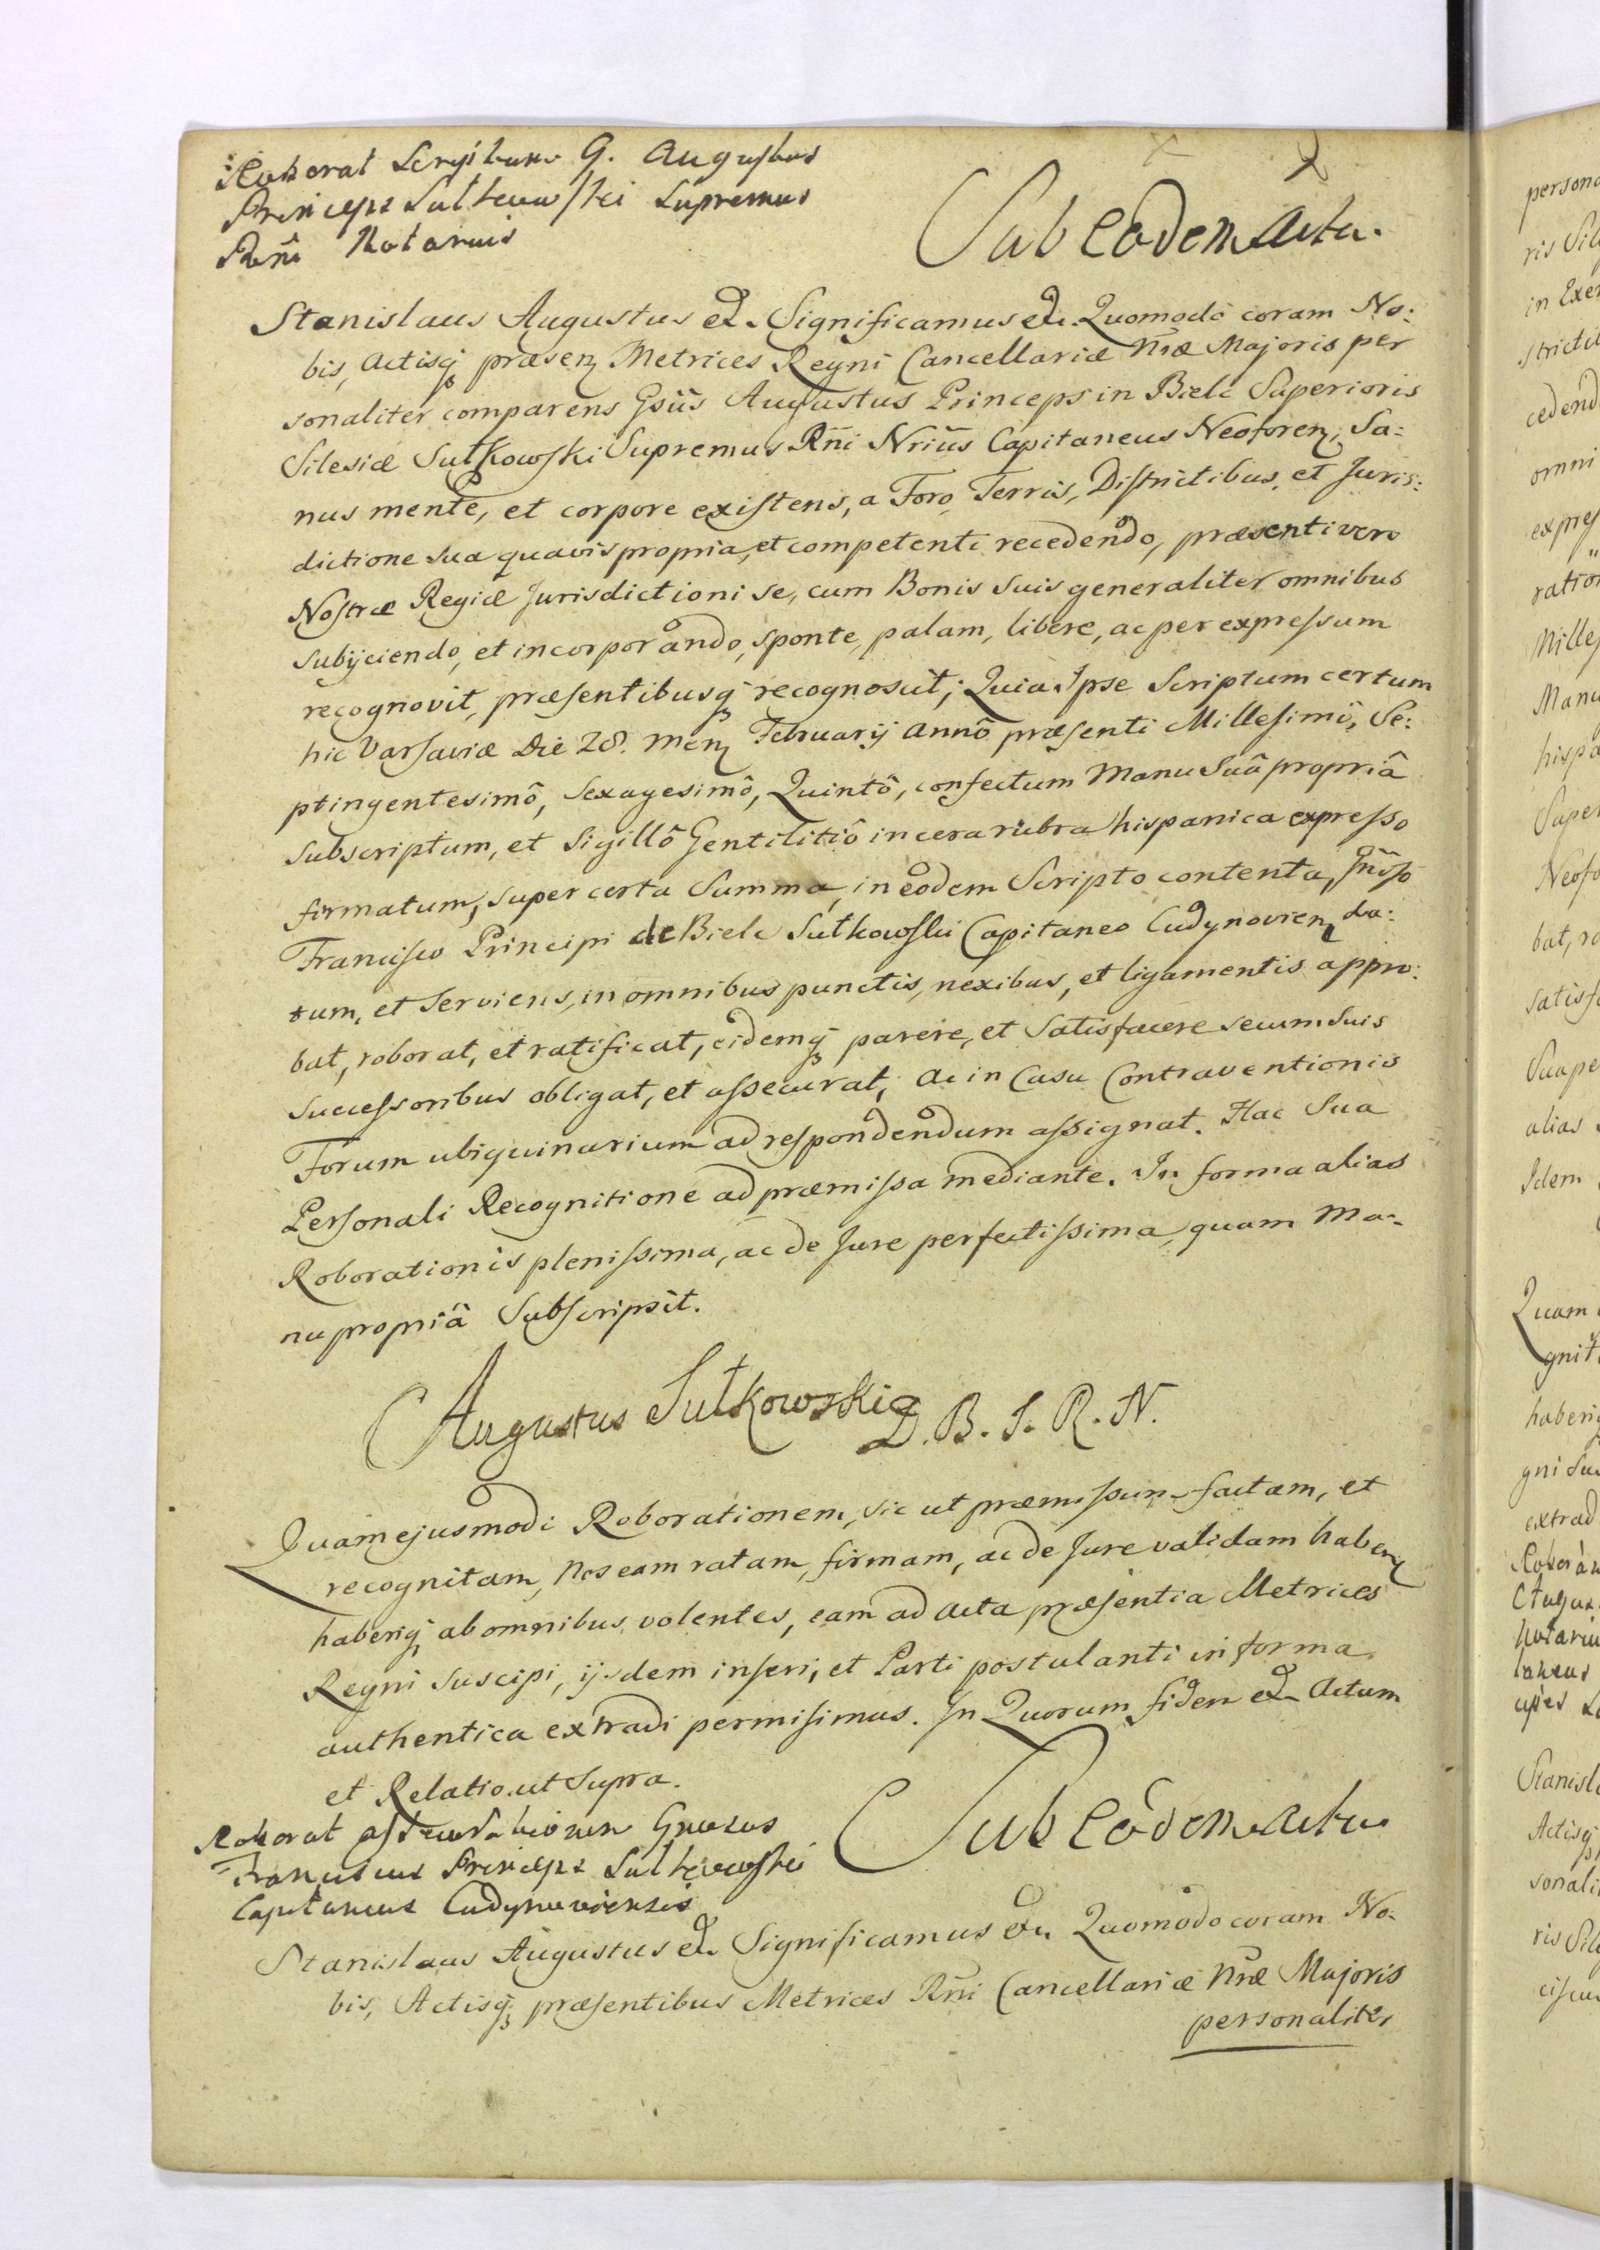 Roborat Scriptum G. Augustus
Princeps Sułkowski Supremus
Rni Notarius
Sub eodem Actu.
Stanislaus Augustus etc. Significamus etc. Quomodo coram No:
bis, Actisq praesen Metrices Regni Cancellariæ Nræ Majoris per
sonaliter comparens Gsus Augustus Princeps in Biele Superioris
Silesiæ Sułkowski Supremus Rni Nrius Capitaneus Neoforen, Sa:
nus mente, et corpore existens, a Foro, Terris, Districtibus, et Juris:
dictione sua quavis propria, et competenti recedendo, præsenti vero
Nostræ Regiæ Jurisdictioni se, cum Bonis suis generaliter omnibus
subijciendo, et incorporando, sponte, palam, libere, ac per expressum
recognovit, præsentibusq recognoscit; Quia Ipse Scriptum certum
hic Varsaviæ Die 28. Men Februarij Annô præsenti Millesimô, Se:
ptingentesimô, Sexagesimô, Quintô, confectum Manu Suâ propriâ
Subscriptum, et Sigillô Gentilitiô in cera rubra hispanica expresso
firmatum, super certa Summa, in eodem Scripto contenta, Gnoso
Francisco Principi de Biele Sułkowski Capitaneo Cudynovien, da:
tum, et Serviens, in omnibus punctis, nexibus, et ligamentis appro:
bat, roborat, et ratificat, eidemq parere, et Satisfacere secum suis
Successoribus obligat, et assecurat, Ac in Casu Contraventionis
Forum ubiquinarium ad respondendum assignat. Hac Sua
Personali Recognitione ad præmissa mediante. In forma alias
Roborationis plenissima, ac de Jure perfectissima, quam Ma:
nu propriâ Subscripsit.
Augustus Sułkowski D. B. S. R. N.
Quam ejusmodi Roborationem, sic ut præmissum factam, et
recognitam, Nos eam ratam, firmam, ac de Jure validam haben
haberiq ab omnibus volentes, eam ad Acta præsentia Metrices
Regni suscipi, ijsdem inseri, et Parti postulanti in forma
authentica extradi permisimus. In Quorum fidem etc. Actum
et Relatio ut Supra.
Roborat Gnosus
Franciscus Princeps Sułkowski
Capitaneus Cudynoviensis
Sub eodem Actu
Stanislaus Augustus etc. Significamus etc. Quomodo coram No:
bis, Actisq præsentibus Metrices Rni Cancellariæ Nræ Majoris
personaliter